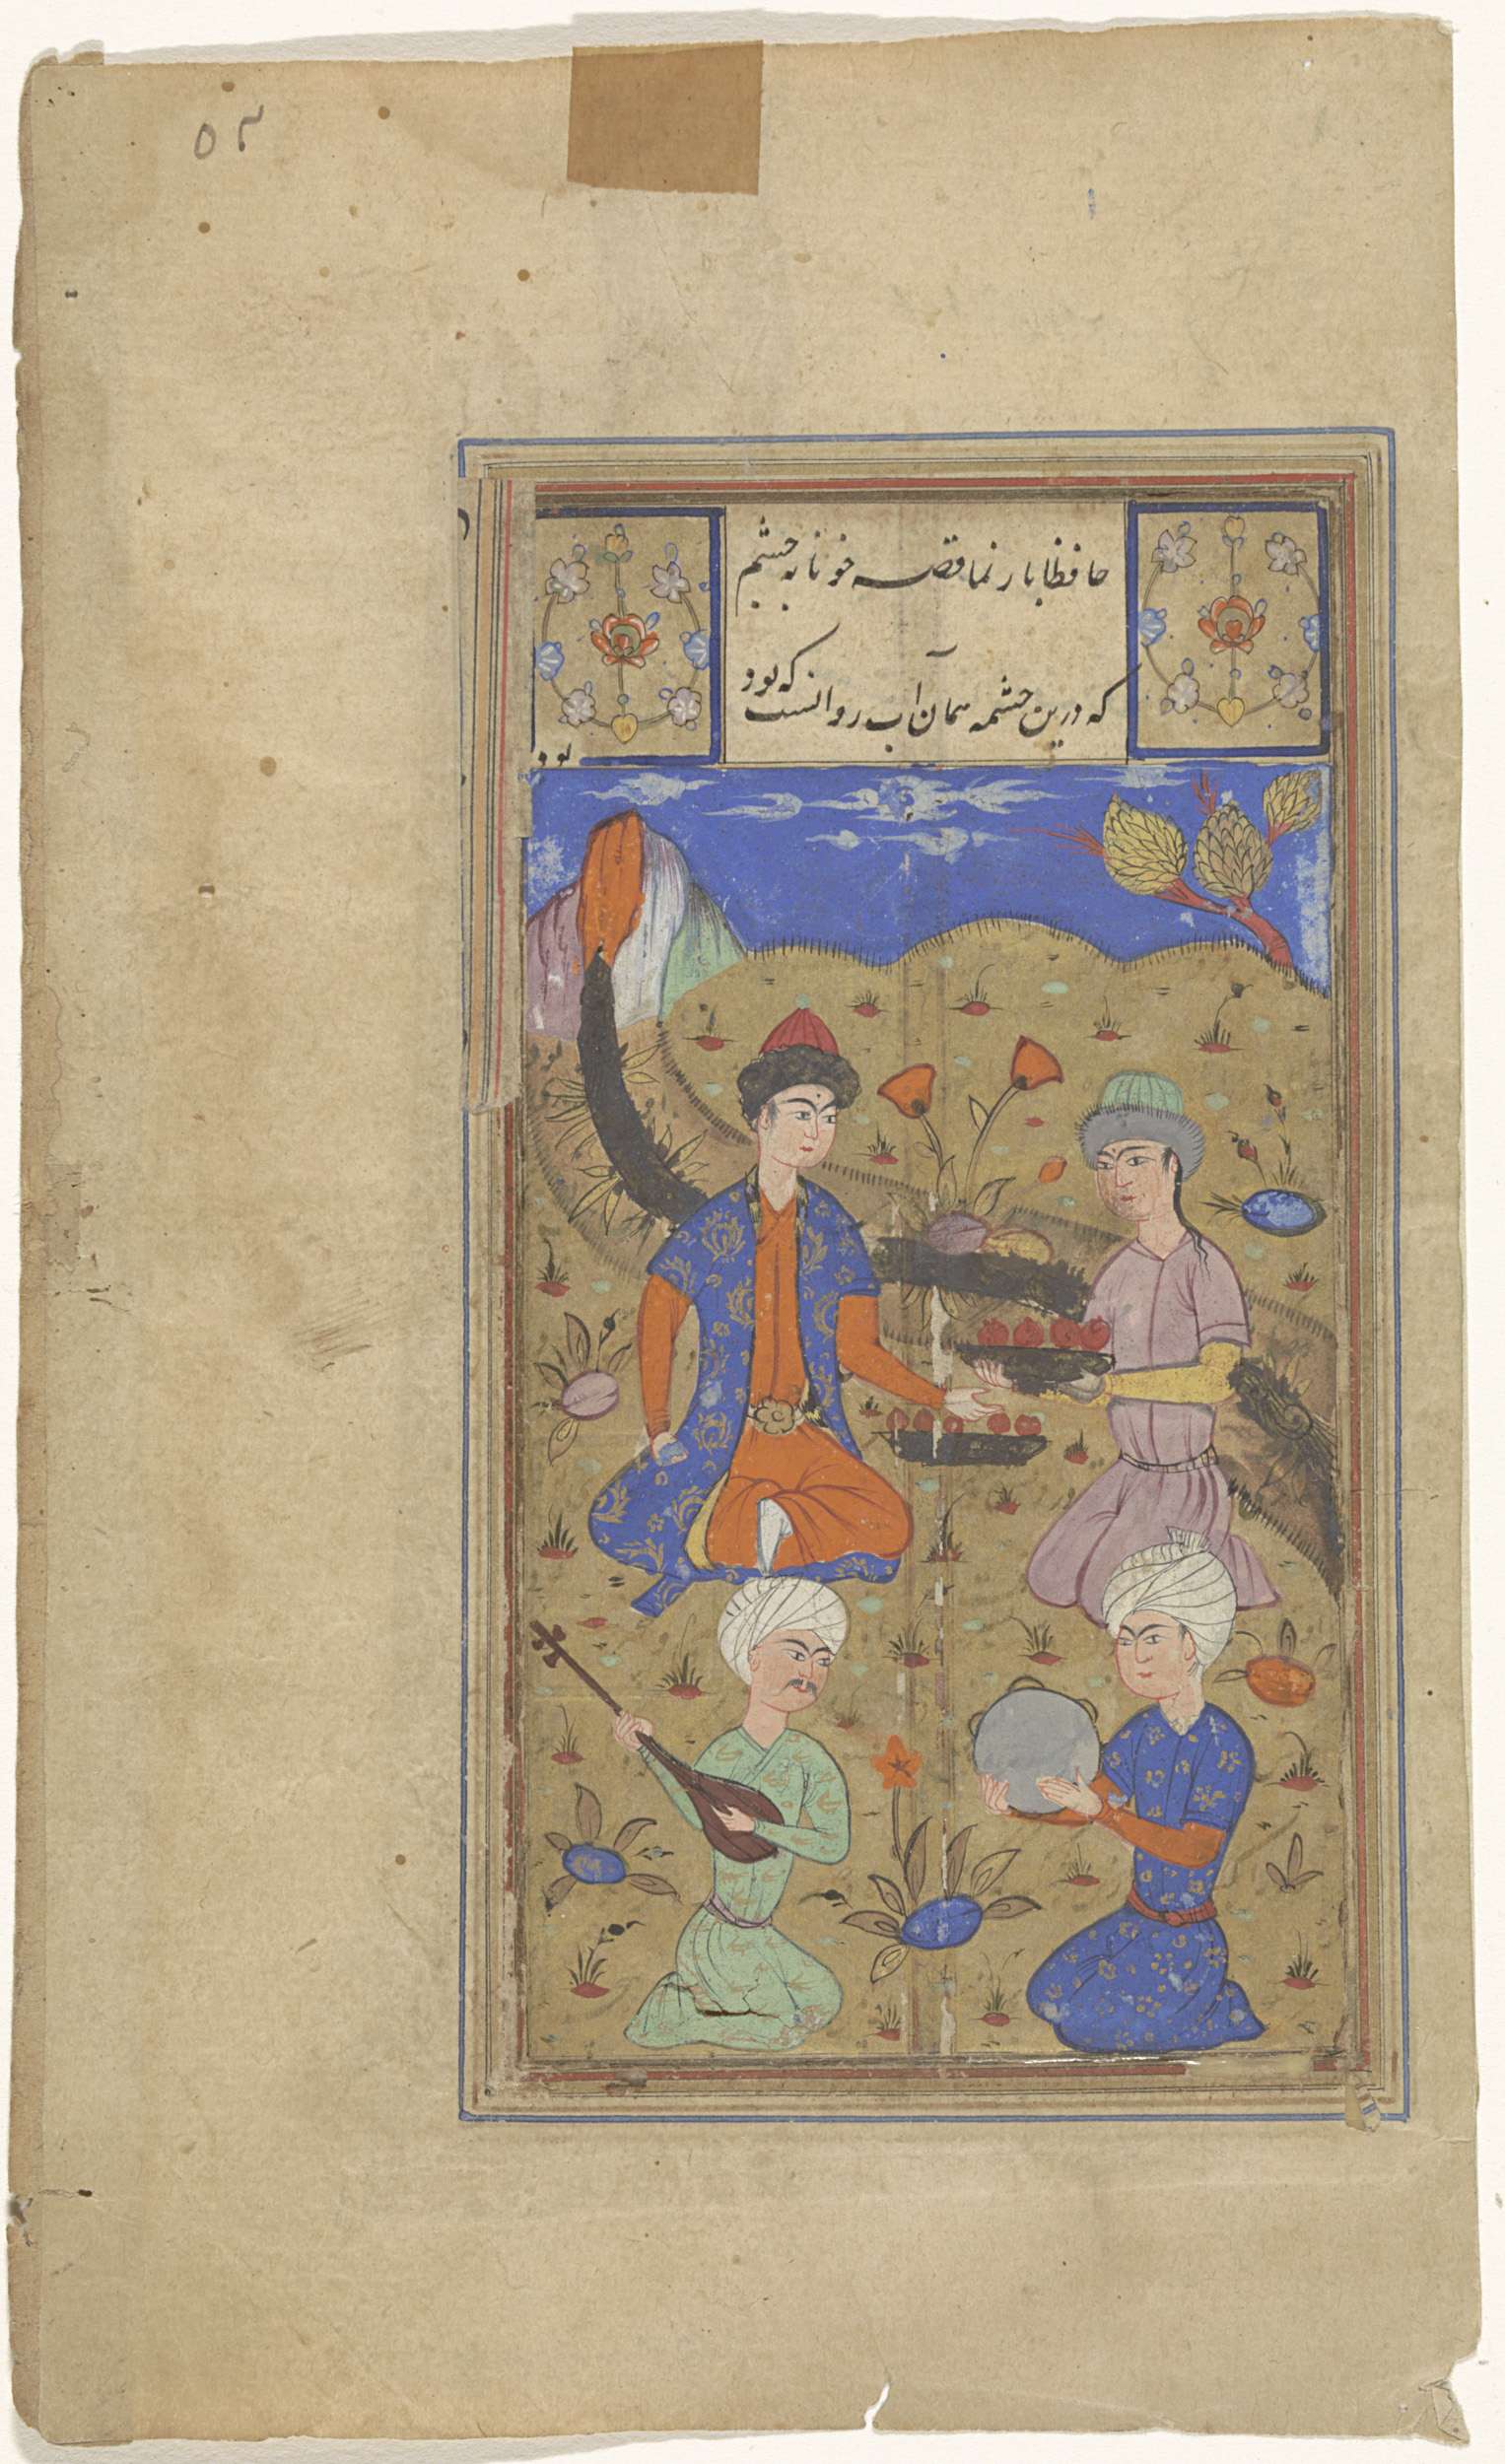 ٥٢
حافظا باز نما قصه خونابه چشم
که درین چشمه همان آب روانست که بود